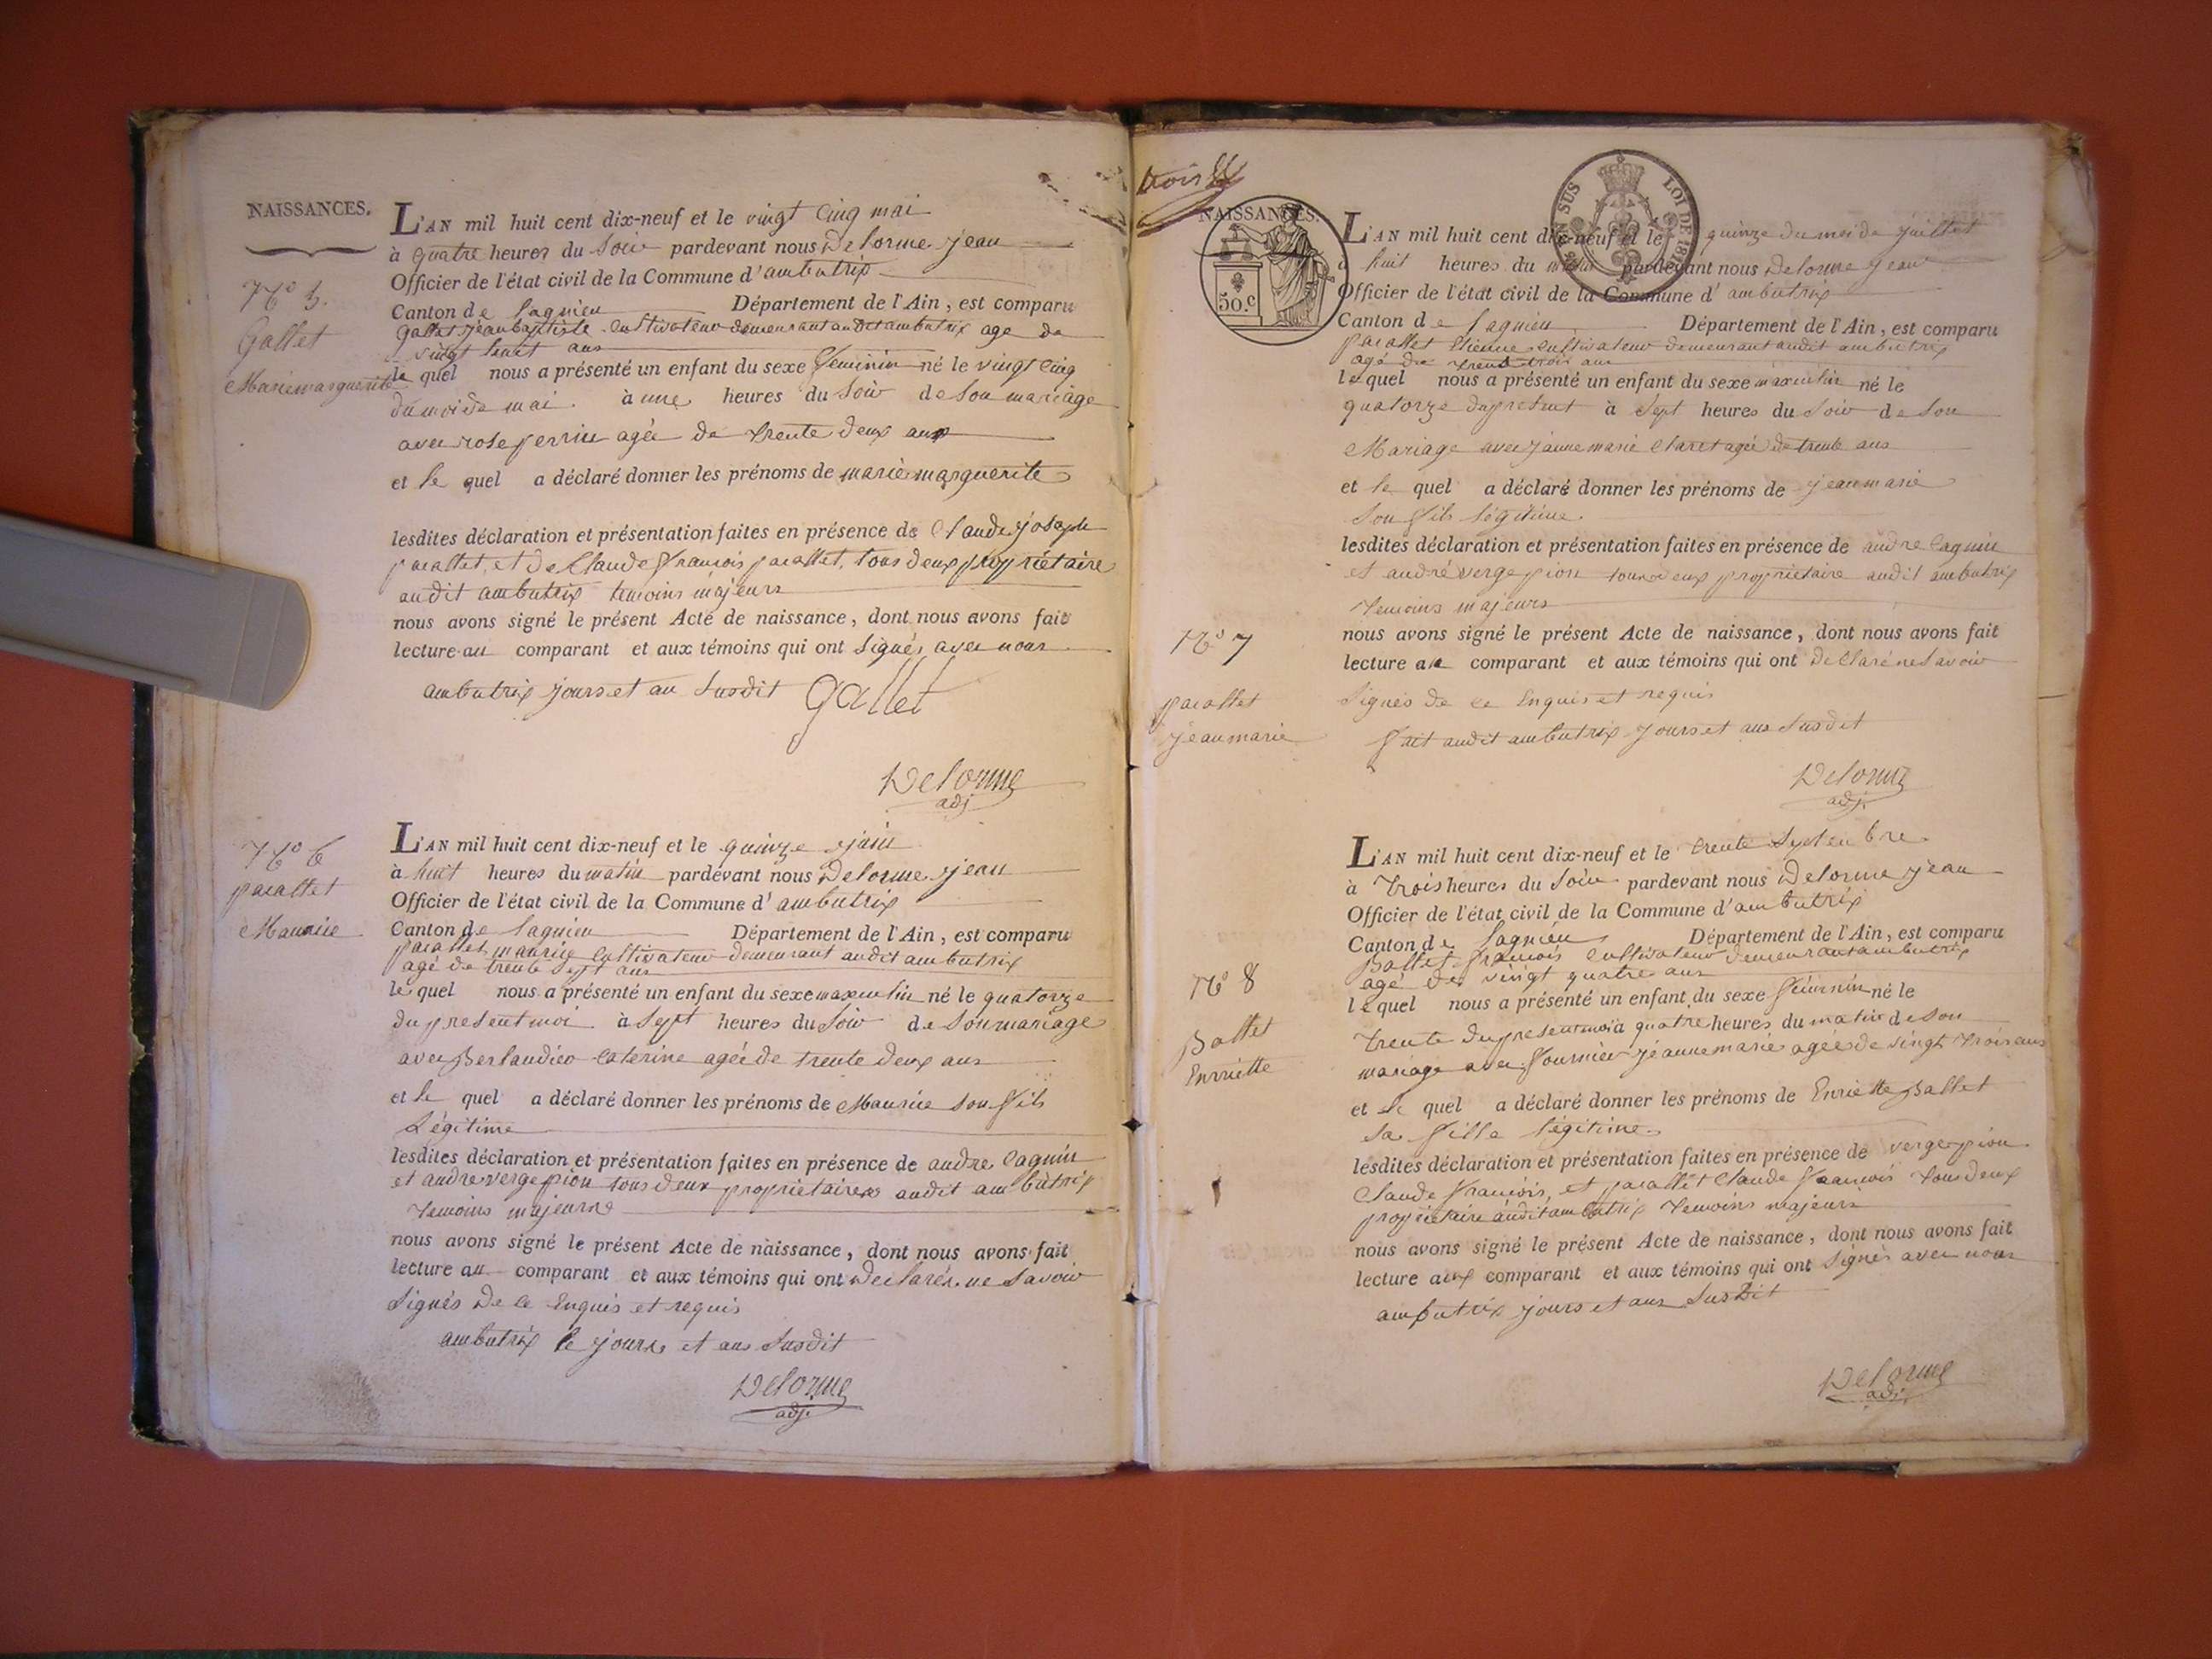 NAISSANCES.
L'AN mil huit cent dix-neuf et le vingt Cinq mai
à quatre heures du Soir pardevant nous Delorme jean
Officier de l'état civil de la Commune d'ambutrix
Canton de Lagnieu Département de l'Ain, est comparu
gallet jean baptiste Cultivateur demeurant audit ambutrix age de
vingt huit ans
le quel nous a présenté un enfant du sexe feminin né le vingt Cinq
du moi de mai à une heures du Soir de Son mariage
avec rose perrin agée de trente deux ans
et le quel a déclaré donner les prénoms de marie marguerite
lesdites déclaration et présentation faites en présence de Claude joseph
paraltet, et de Claude François paraltet, tous deux propriétaire
audit ambutrix temoins majeurs
nous avons signé le présent Acte de naissance, dont nous avons fait
lecture au comparant et aux témoins qui ont Signés avec nous
ambutrix jours et an Susdit gallet
Delorme
adj
N° 5.
Gallet
Marie marguerite
N° 6
paraltet
Maurice
L'AN mil huit cent dix-neuf et le quinze juin
à huit heures du matin pardevant nous Delorme jean
Officier de l'état civil de la Commune d'ambutrix
Canton de Lagnieu Département de l'Ain, est comparu
paraltet maurice Cultivateur demeurant audit ambutrix
agé de trente Sept ans
le quel nous a présenté un enfant du sexe maxculin né le quatorze
du present moi à Sept heures du Soir de Son mariage
avec Berlandier Caterine agée de trente deux ans
et le quel a déclaré donner les prénoms de Maurice Son fils
Légitime
lesdites déclaration et présentation faites en présence de andre Cagnin
et andre vergepion tous deux proprietaires audit ambutrix
temoins majeurs
nous avons signé le présent Acte de naissance, dont nous avons fait
lecture au comparant et aux témoins qui ont Declarés ne Savoir
Signés De Ce Enquis et requis
ambutrix le jours et ans Susdit
Delorme
adj.
trois
NAISSANCES.
50.c
EN SUS
LOI DE 181
L'AN mil huit cent dix-neuf et le quinze du moi de juillet
à huit heures du matin pardevant nous Delorme jean
Officier de l'état civil de la Commune d'ambutrix
Canton de Lagnieu Département de l'Ain, est comparu
paraltet Etienne Cultivateur demeurant audit ambutrix
agé de trente trois ans
le quel nous a présenté un enfant du sexe maxculin né le
quatorze du présent à Sept heures du Soir de Son
Mariage avec jeanne marie Claret agée de trente ans
et le quel a déclaré donner les prénoms de jean marie
Son fils légitime.
lesdites déclaration et présentation faites en présence de andre Cagnin
et andré vergepion tous deux proprietaire audit ambutrix
temoins majeurs
nous avons signé le présent Acte de naissance, dont nous avons fait
lecture au comparant et aux témoins qui ont Declaré ne Savoir
Signés de ce Enquis et requis
fait audit ambutrix jours et ans Susdit
Delorme
adj.
N° 7
paraltet
jean marie
L'AN mil huit cent dix-neuf et le trente Septembre
à trois heures du Soir pardevant nous Delorme jean
Officier de l'état civil de la Commune d'ambutrix
Canton de Lagnieu Département de l'Ain, est comparu
Ballet François Cultivateur demeurant ambutrix
agé de vingt quatre ans
le quel nous a présenté un enfant du sexe féminin né le
trente du present moi à quatre heures du matin de Son
mariage avec Fournier jeanne marie agée de vingt trois ans
et le quel a déclaré donner les prénoms de Enriette Ballet
Sa fille légitime
lesdites déclaration et présentation faites en présence de vergepion
Claude François, et paraltet Claude François tous deux
propriétaire audit ambutrix temoins majeurs
nous avons signé le présent Acte de naissance, dont nous avons fait
lecture aux comparant et aux témoins qui ont Signés avec nous
ambutrix jours et ans Susdit
Delorme
adj.
N° 8
Ballet
Enriette